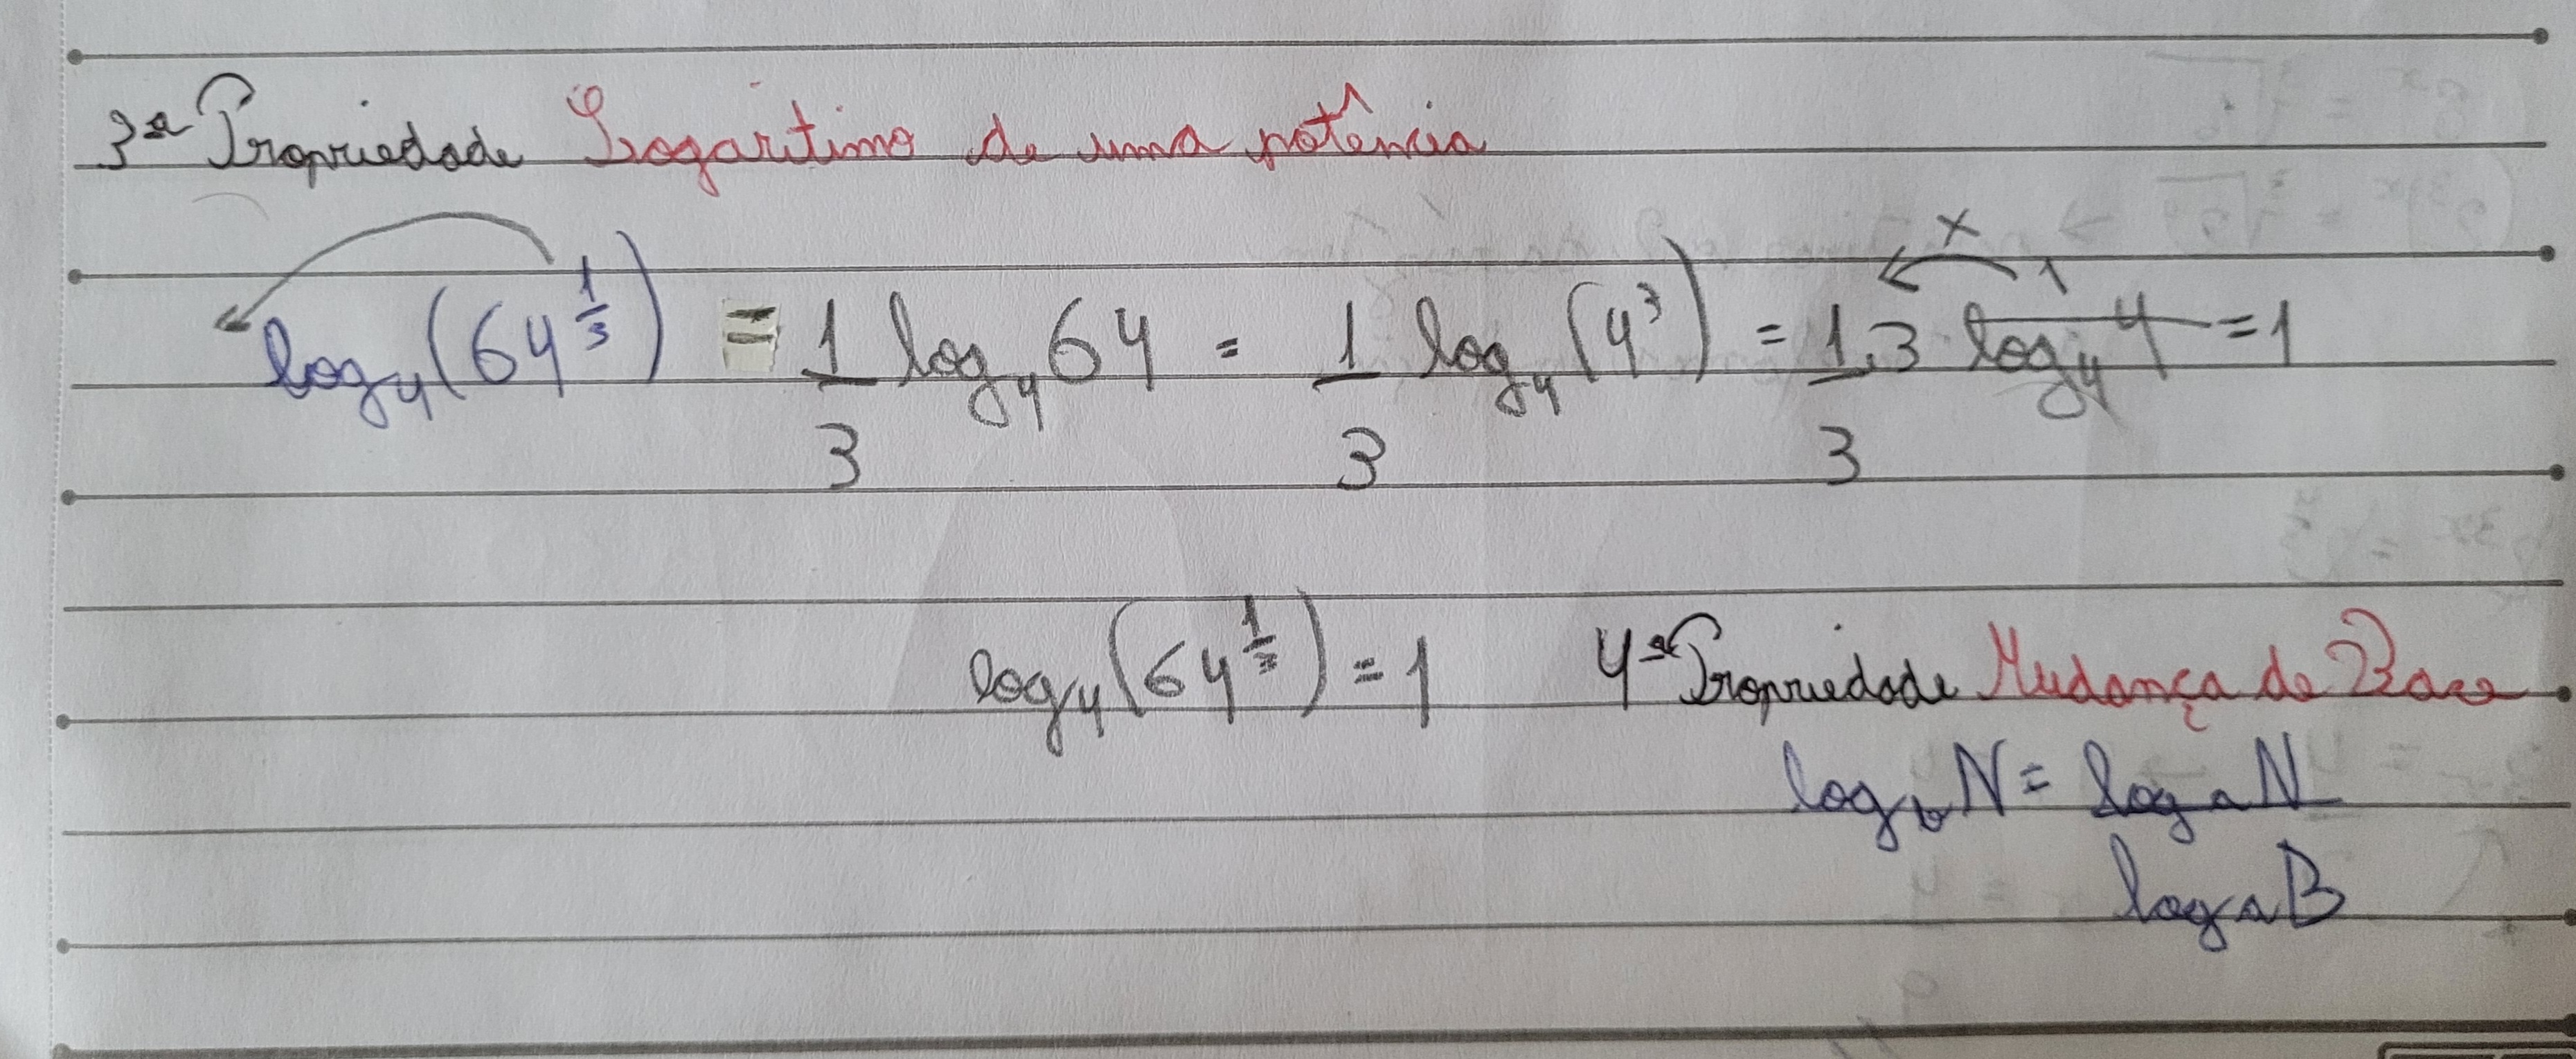 3ª Propriedade Logaritimo de uma potência
log₄(64^(1/3)) = 1/3 log₄ 64 = 1/3 log₄ (4³) = 1/3 . 3 log₄ 4 = 1
x 1
log₄(64^(1/3)) = 1
4ª Propriedade Mudança de Base
log_b N = log_a N
log_a B